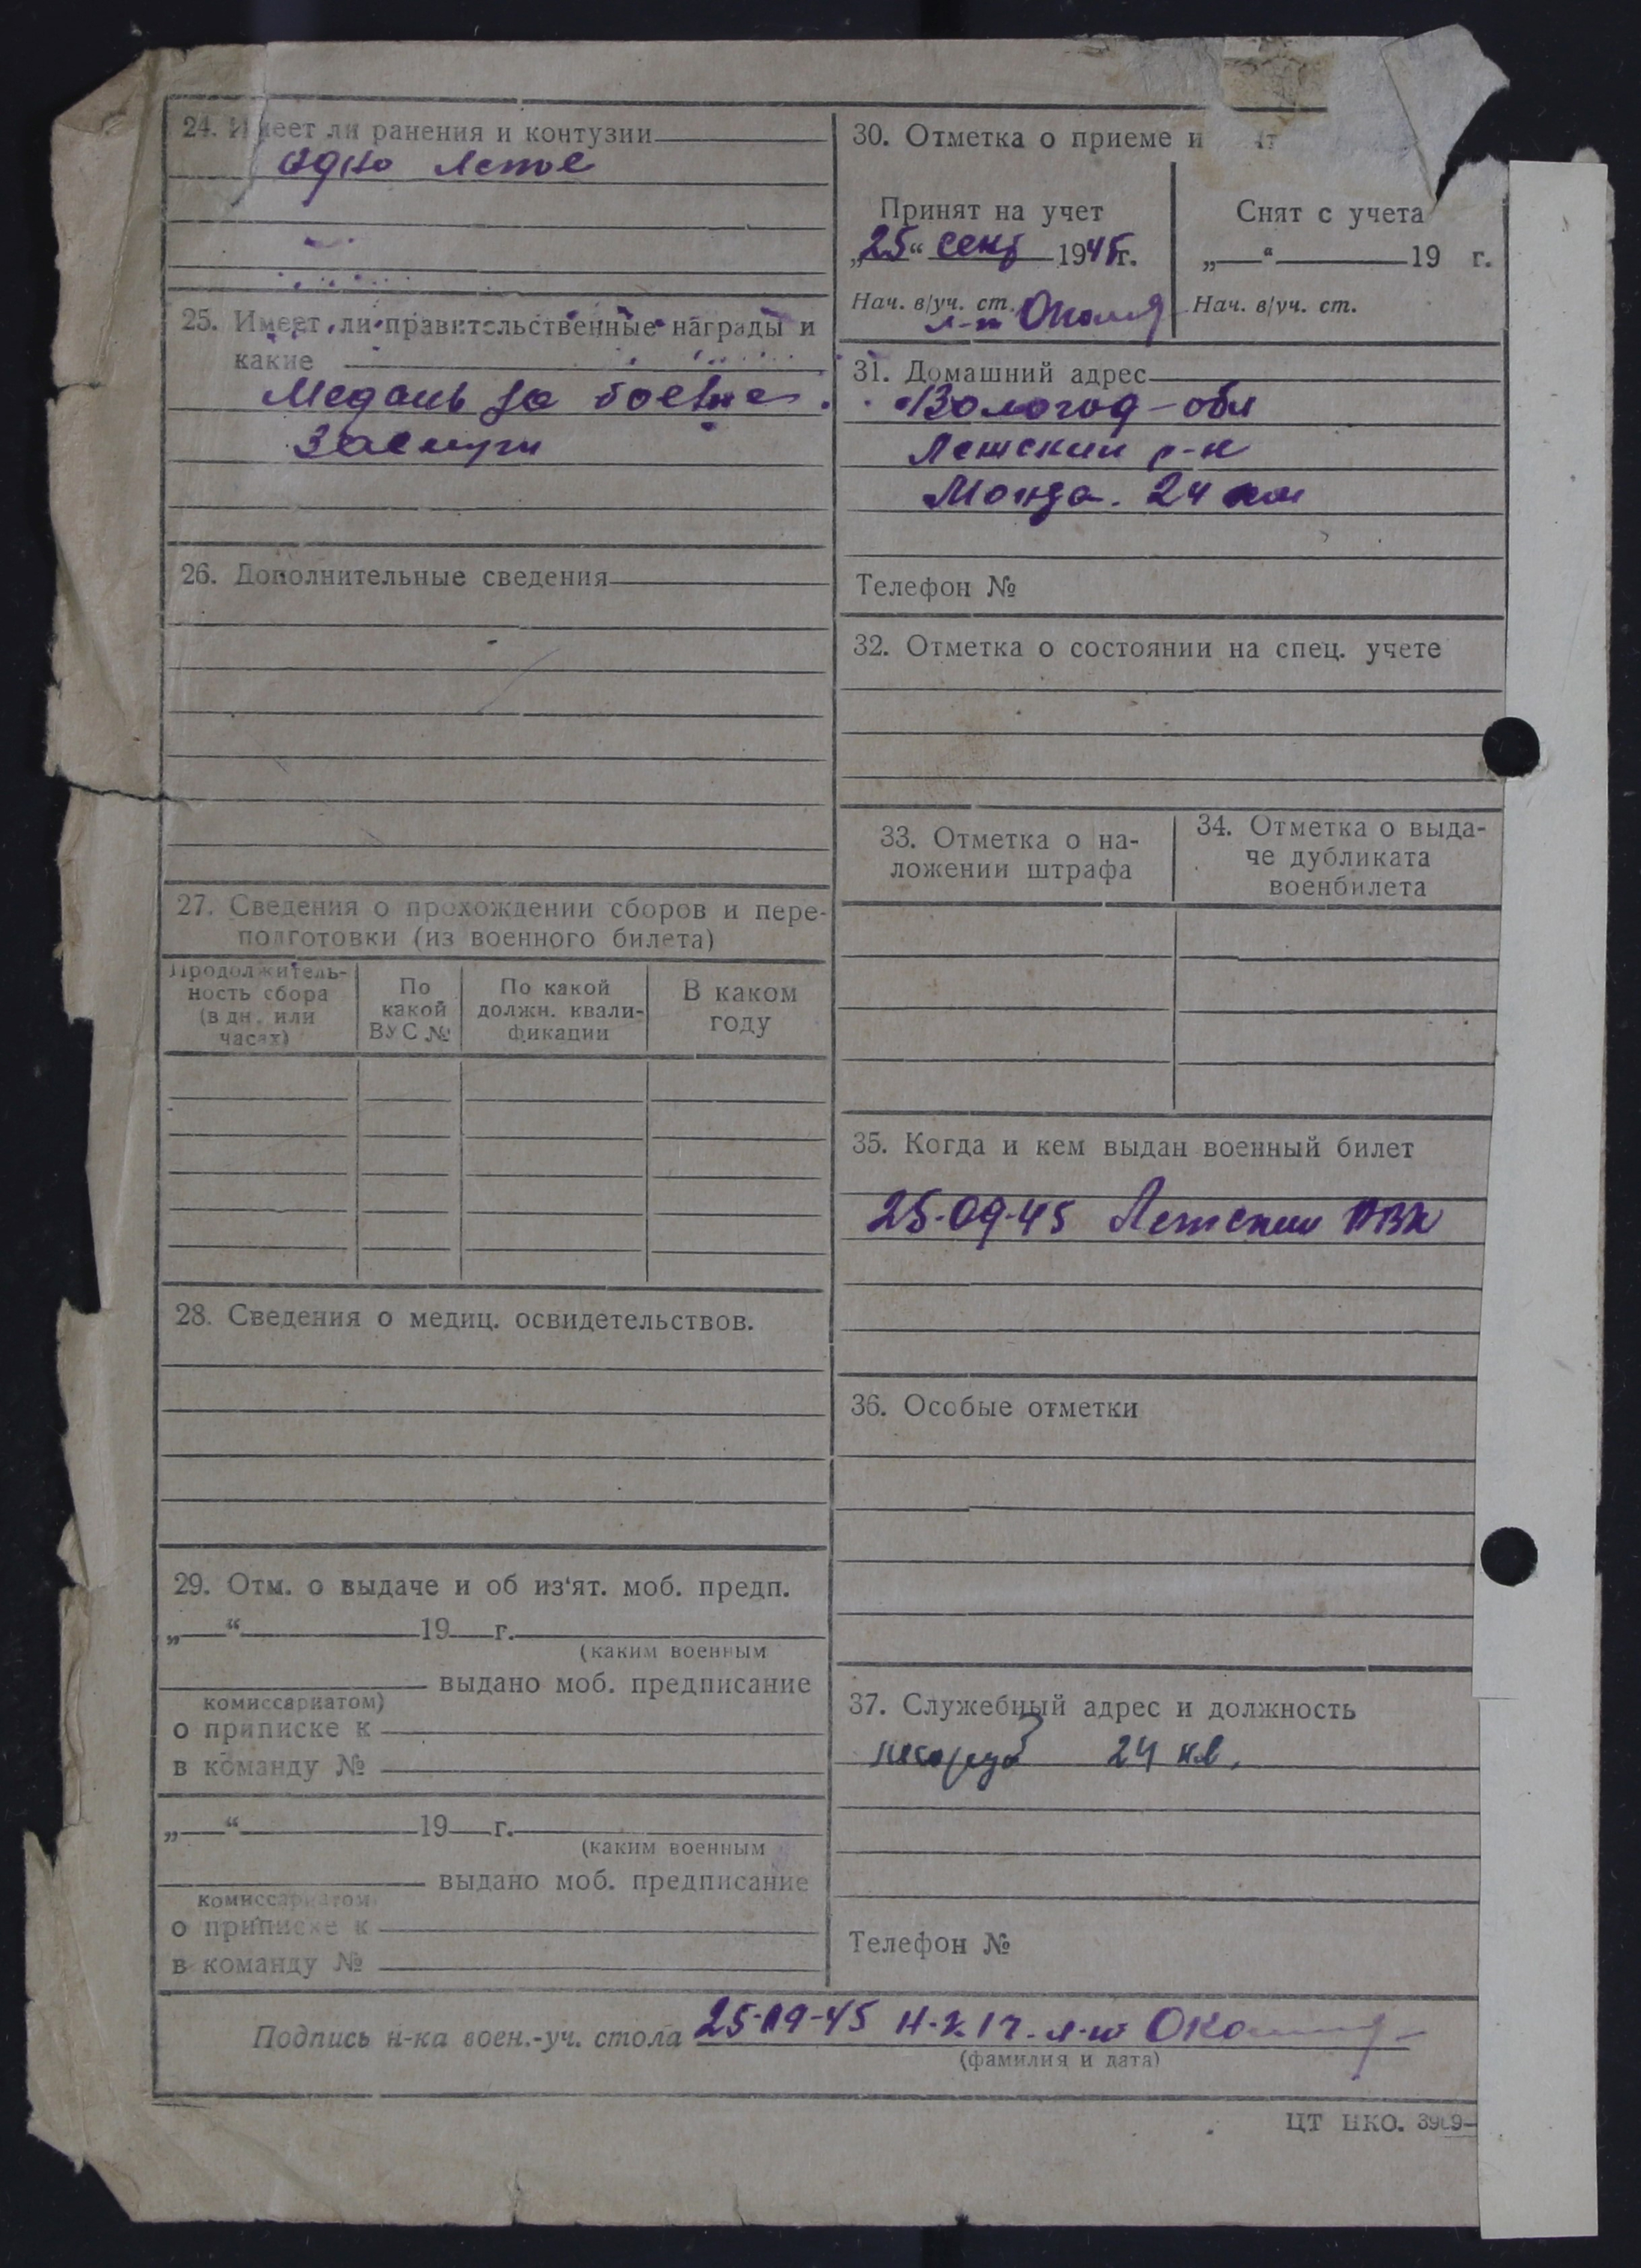 24. Имеет ли ранения и контузии
одно легкое
25. Имеет ли правительственные награды и
какие
Медаль за боевые
заслуги
26. Дополнительные сведения
27. Сведения о прохождении сборов и пере-
подготовки (из военного билета)
Продолжитель-
ность сбора
(в дн. или
часах)
По
какой
ВУС №
По какой
должн. квали-
фикации
В каком
году
28. Сведения о медиц. освидетельствов.
29. Отм. о выдаче и об из'ят. моб. предп.
„ “ 19 г.
(каким военным
выдано моб. предписание
комиссариатом)
о приписке к
в команду №
„ “ 19 г.
(каким военным
выдано моб. предписание
комиссариатом
о приписке к
в команду №
30. Отметка о приеме и
Принят на учет
„25“ сент 1945г.
Нач. в/уч. ст.
л-т
Снят с учета
„ “ 19 г.
Нач. в/уч. ст.
31. Домашний адрес
Вологод-обл
р-н
24 км
Телефон №
32. Отметка о состоянии на спец. учете
33. Отметка о на-
ложении штрафа
34. Отметка о выда-
че дубликата
военбилета
35. Когда и кем выдан военный билет
25-09-45 РВК
36. Особые отметки
37. Служебный адрес и должность
24 кв.
Телефон №
Подпись н-ка воен.-уч. стола 25-09-45
(фамилия и дата)
ЦТ НКО.